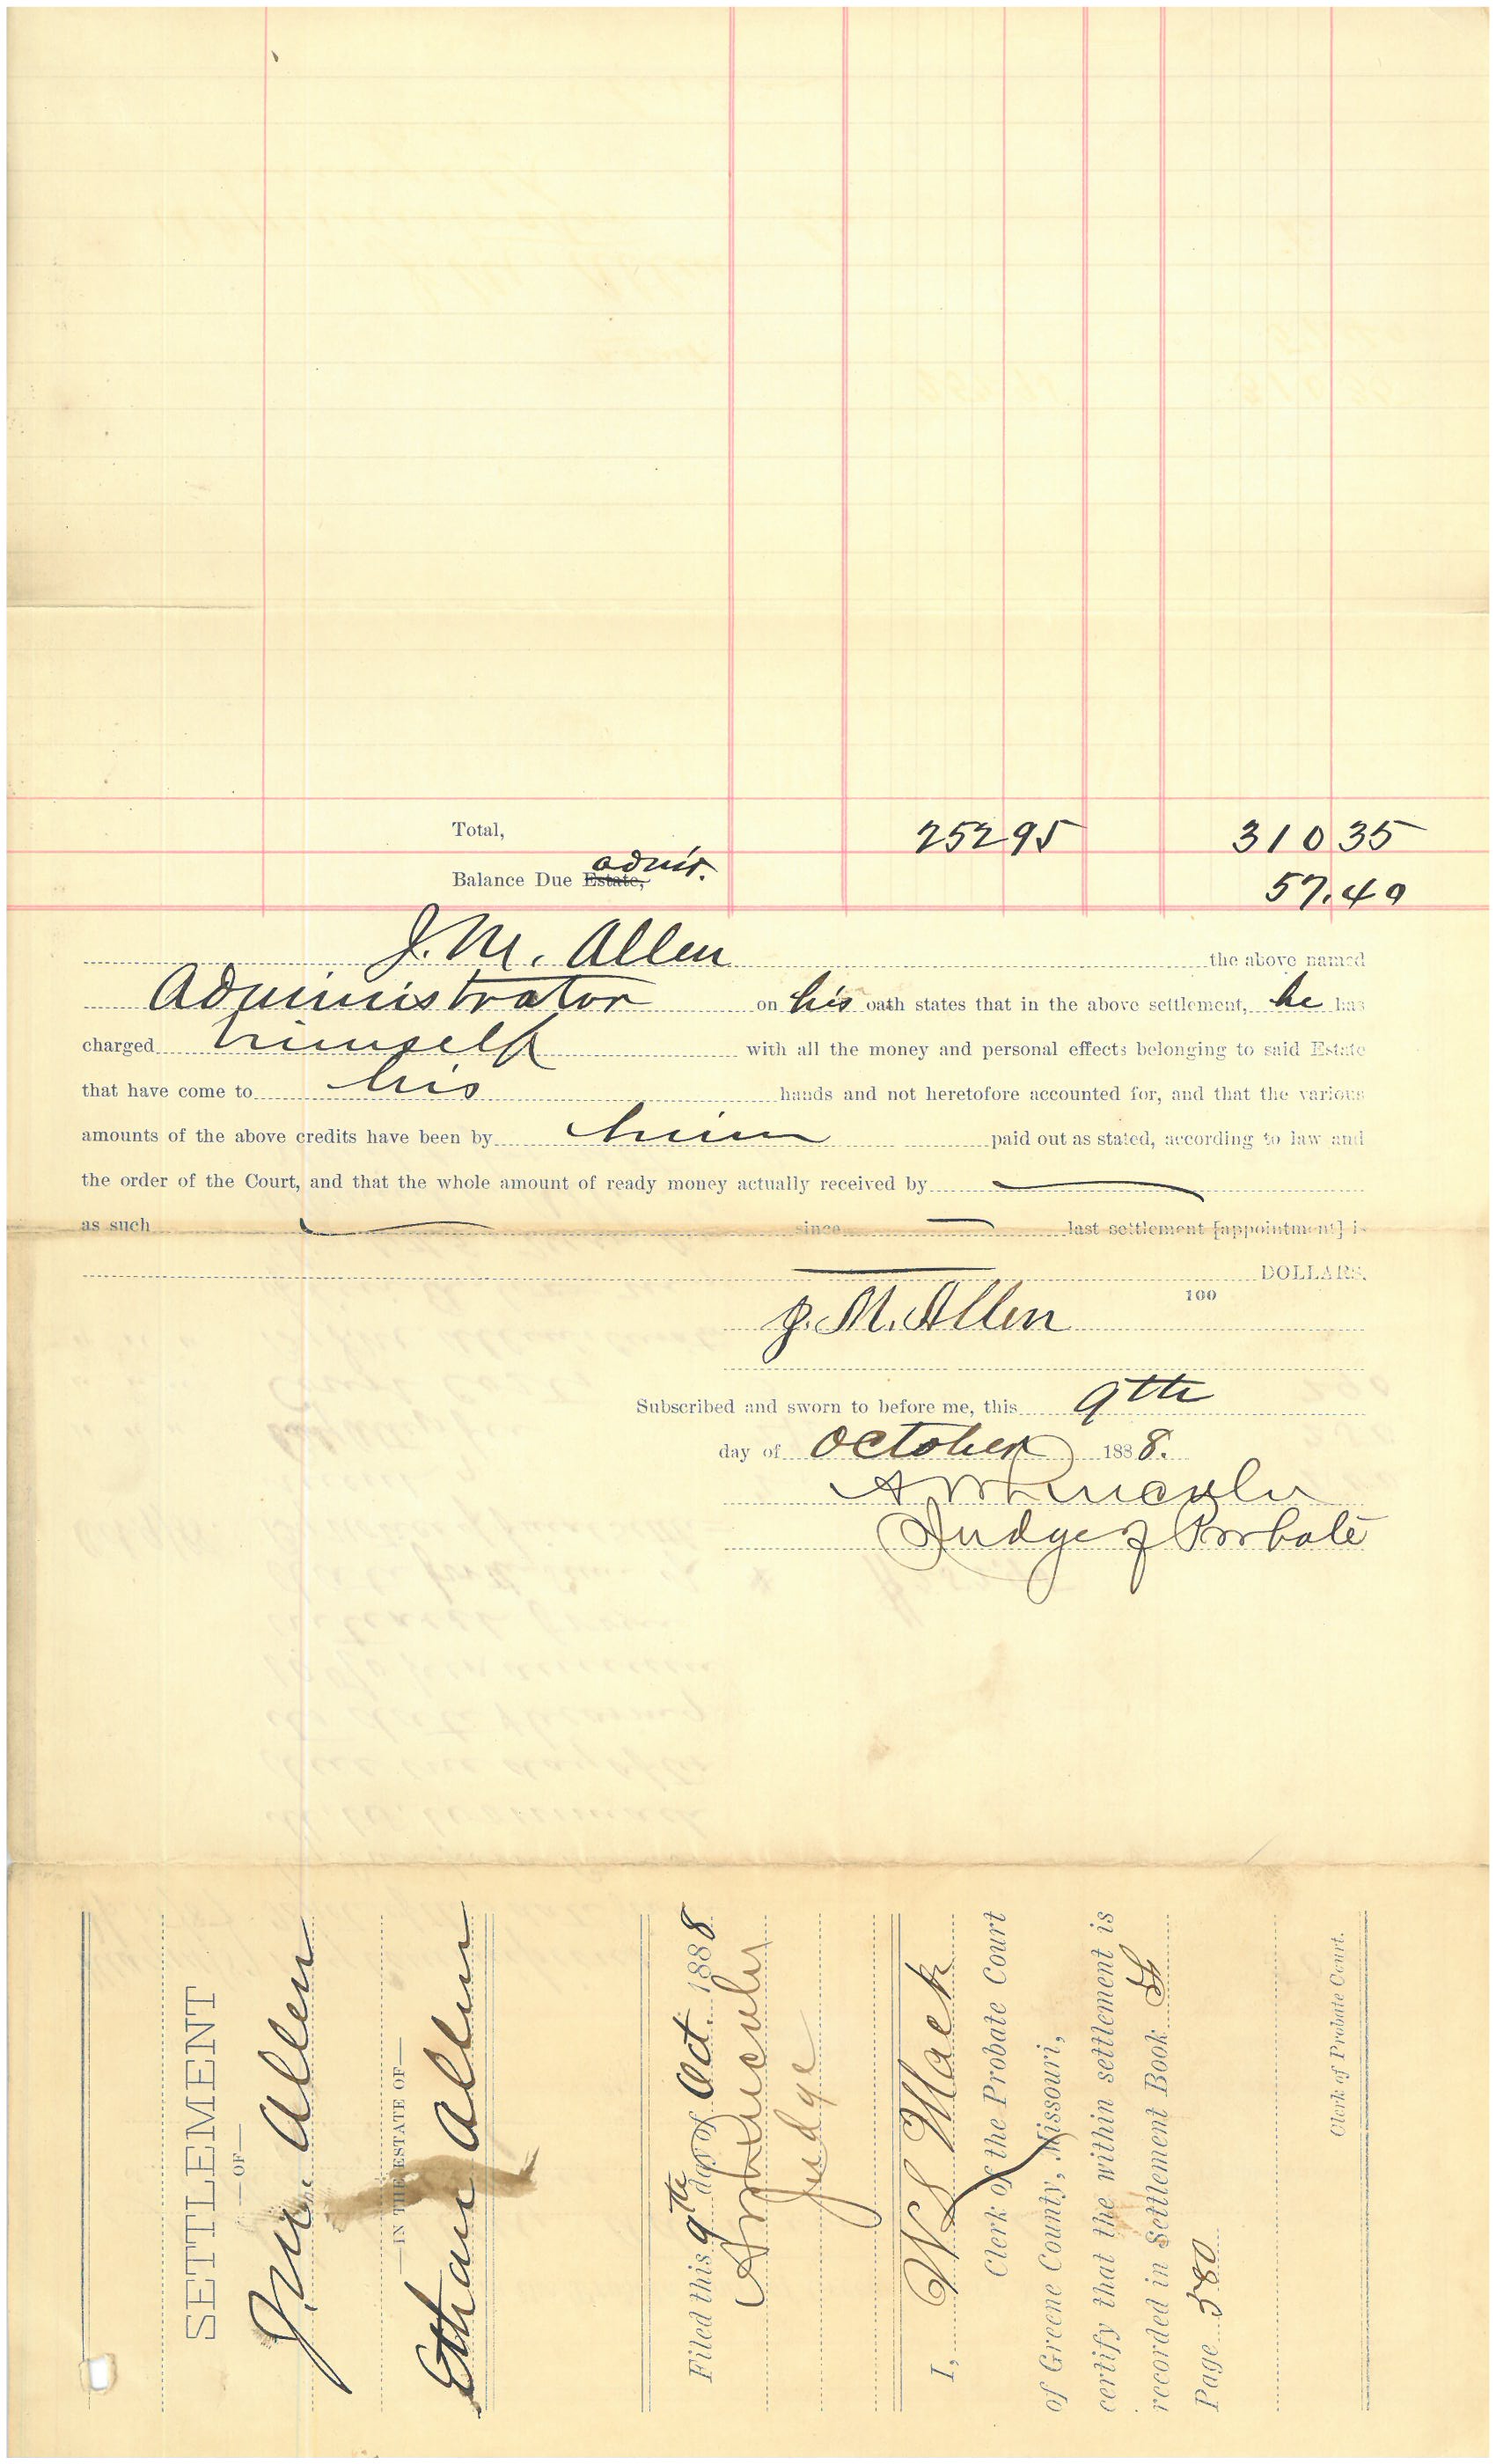 Total, 252 95 310 35
Balance Due Estate, admr. 57.40
J. M. Allen the above named
Administrator on his oath states that in the above settlement, he has
charged himself with all the money and personal effects belonging to said Estate
that have come to his hands and not heretofore accounted for, and that the various
amounts of the above credits have been by him paid out as stated, according to law and
the order of the Court, and that the whole amount of ready money actually received by
as such since last settlement [appointment] is
DOLLARS.
100
J. M. Allen
Subscribed and sworn to before me, this 9th
day of October 1888.
A W Lincoln
Judge of Probate
SETTLEMENT
—OF—
J. M. Allen
—IN THE ESTATE OF—
Ethan Allen
Filed this 9th day of Oct. 1888
A W Lincoln
Judge
I, W L Mack
Clerk of the Probate Court
of Greene County, Missouri,
certify that the within settlement is
recorded in Settlement Book
Page 580
Clerk of Probate Court.